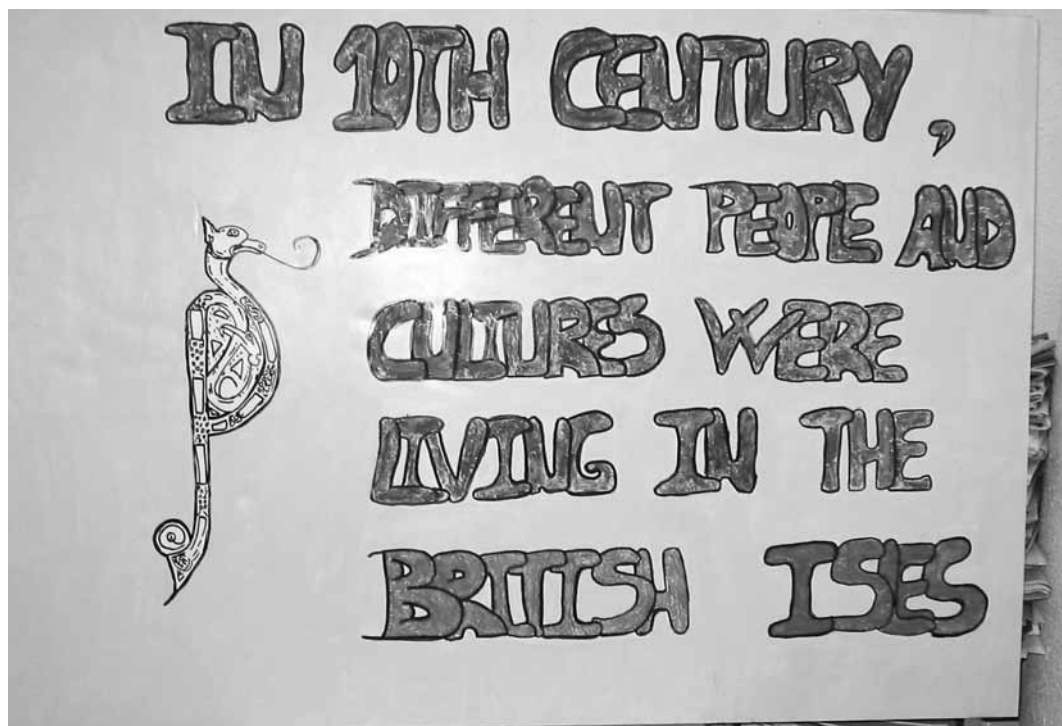 IN 10TH CENTURY,
DIFFERENT PEOPE AND
CULTURES WERE
LIVING IN THE
BRITISH ISES